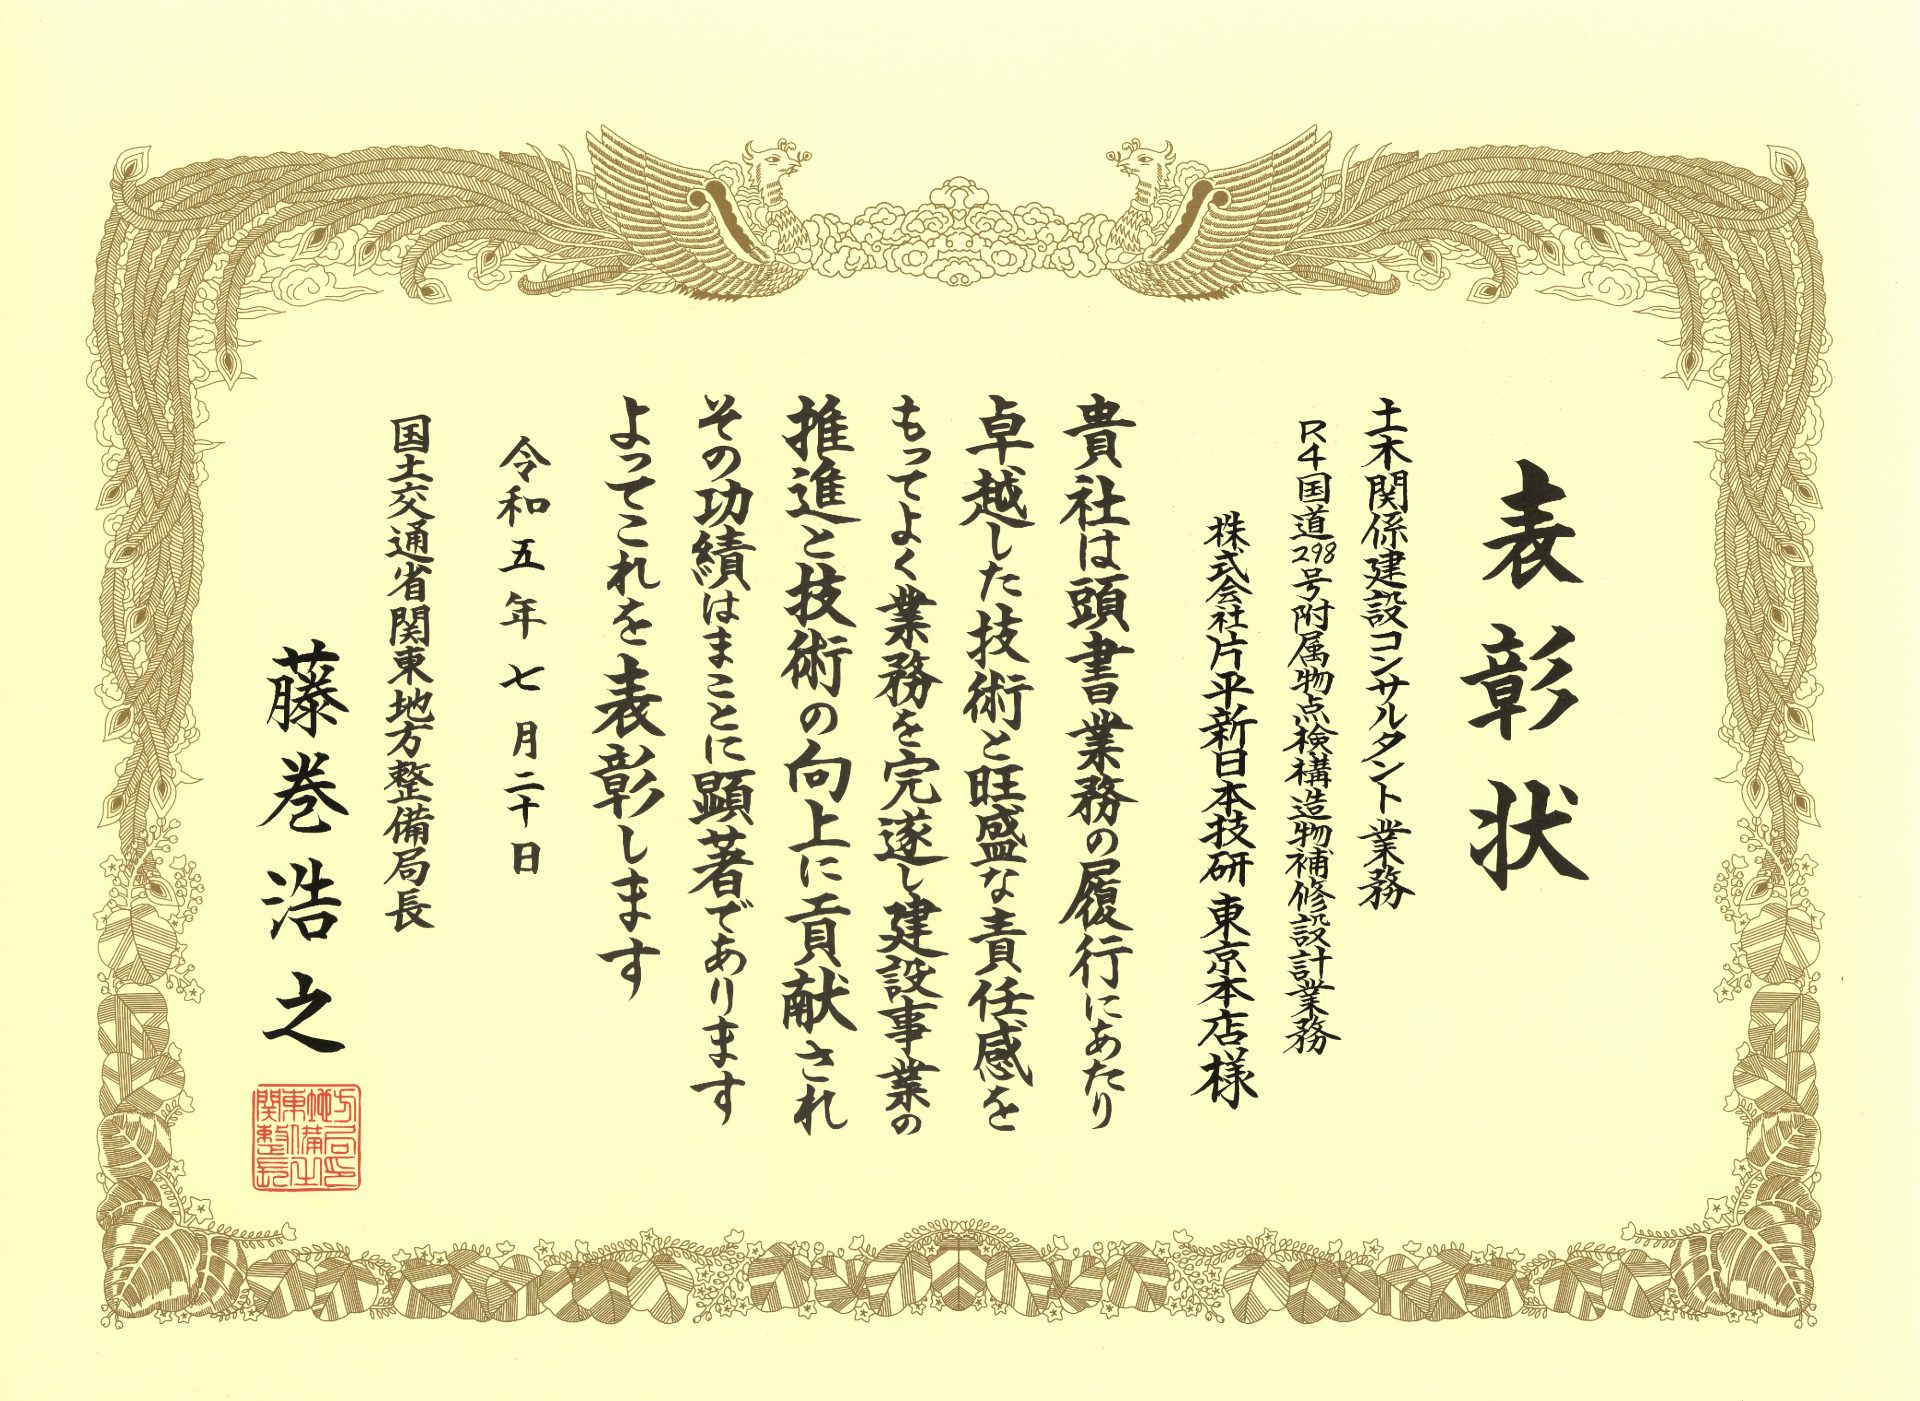 表彰状
土木関係建設コンサルタント業務
R4国道298号附属物点検構造物補修設計業務
株式会社片平新日本技研 東京本店様
貴社は頭書業務の履行にあたり
卓越した技術と旺盛な責任感を
もってよく業務を完遂し建設事業の
推進と技術の向上に貢献され
その功績はまことに顕著であります
よってこれを表彰します
令和五年七月二十日
国土交通省関東地方整備局長
藤巻浩之